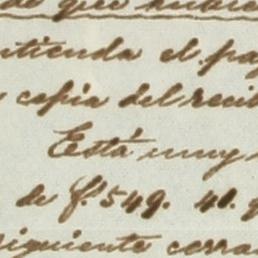 de que hubie
ntienda el pa
copia del recib
Está muy
de f. 549. 40.
siguiente corra